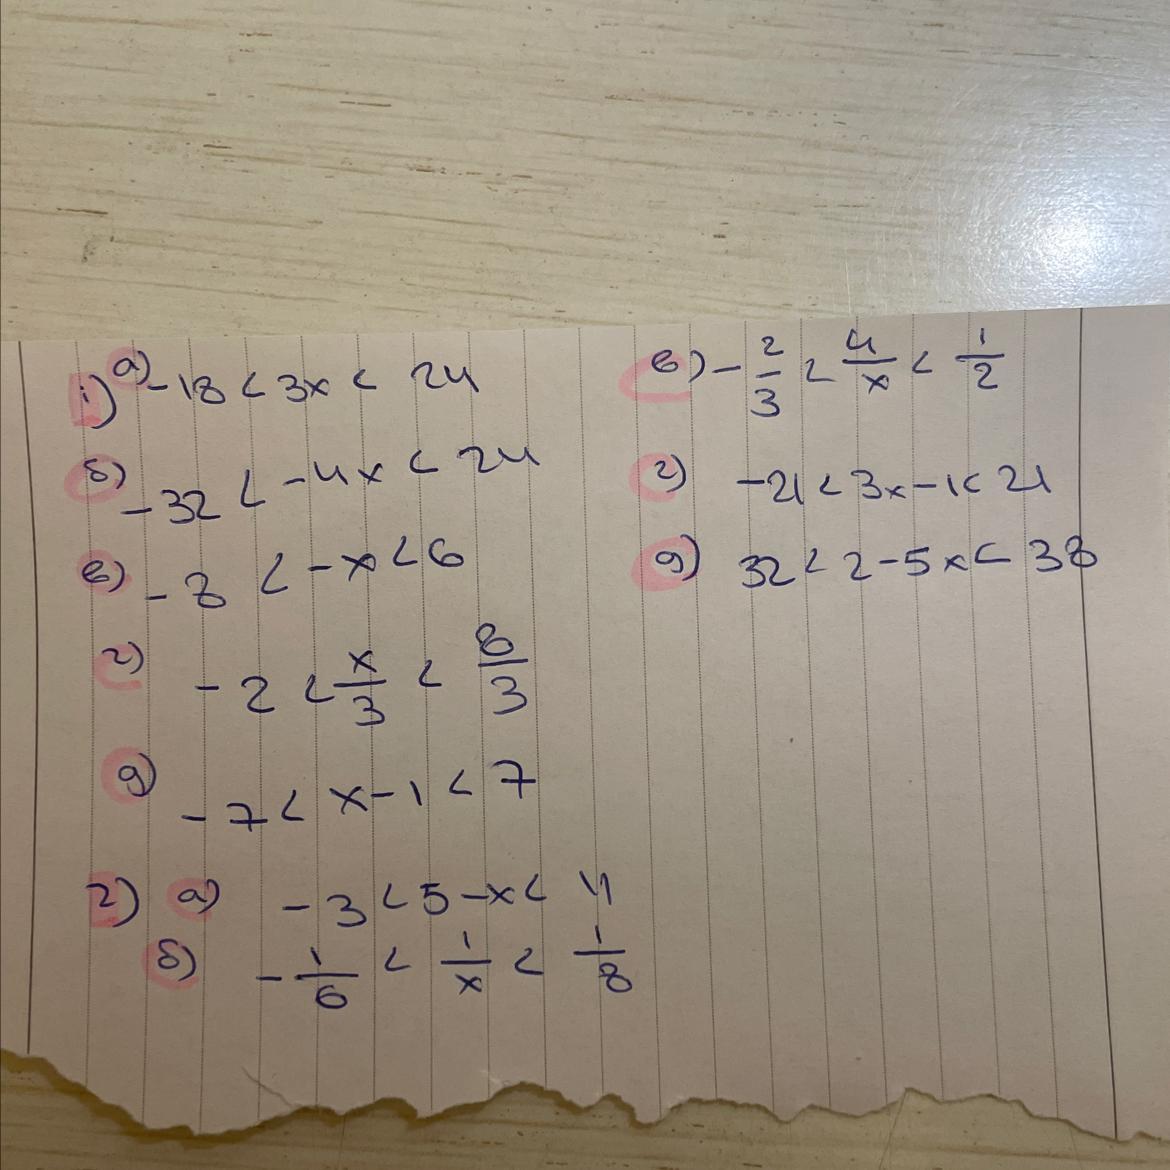 1) а) -18 < 3x < 24
б) -32 < -4x < 24
в) -8 < -x < 6
г) -2 < x/3 < 8/3
д) -7 < x-1 < 7
2) а) -3 < 5-x < 4
б) -1/6 < 1/x < 1/8
в) -2/3 < 4/x < 1/2
г) -21 < 3x-1 < 21
д) 32 < 2-5x < 38